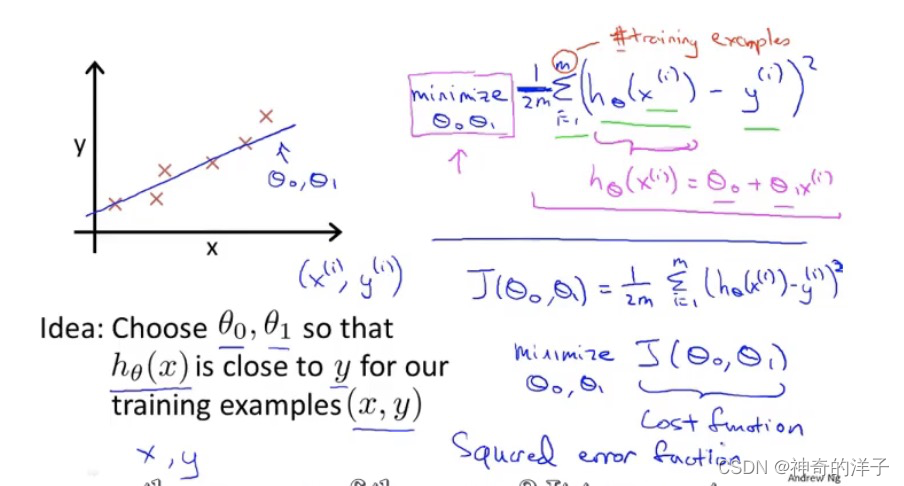 #training examples
minimize
θ₀ θ₁
1/2m Σ_{i=1}^{m} (h_θ(x^{(i)}) - y^{(i)})²
h_θ(x^{(i)}) = θ₀ + θ₁x^{(i)}
y
θ₀, θ₁
x
(x^{(i)}, y^{(i)})
J(θ₀, θ₁) = 1/2m Σ_{i=1}^{m} (h_θ(x^{(i)}) - y^{(i)})²
Idea: Choose θ₀, θ₁ so that
h_θ(x) is close to y for our
training examples (x, y)
x, y
minimize J(θ₀, θ₁)
θ₀, θ₁
Cost function
Squared error fuction
CSDN @神奇的洋子
Andrew Ng